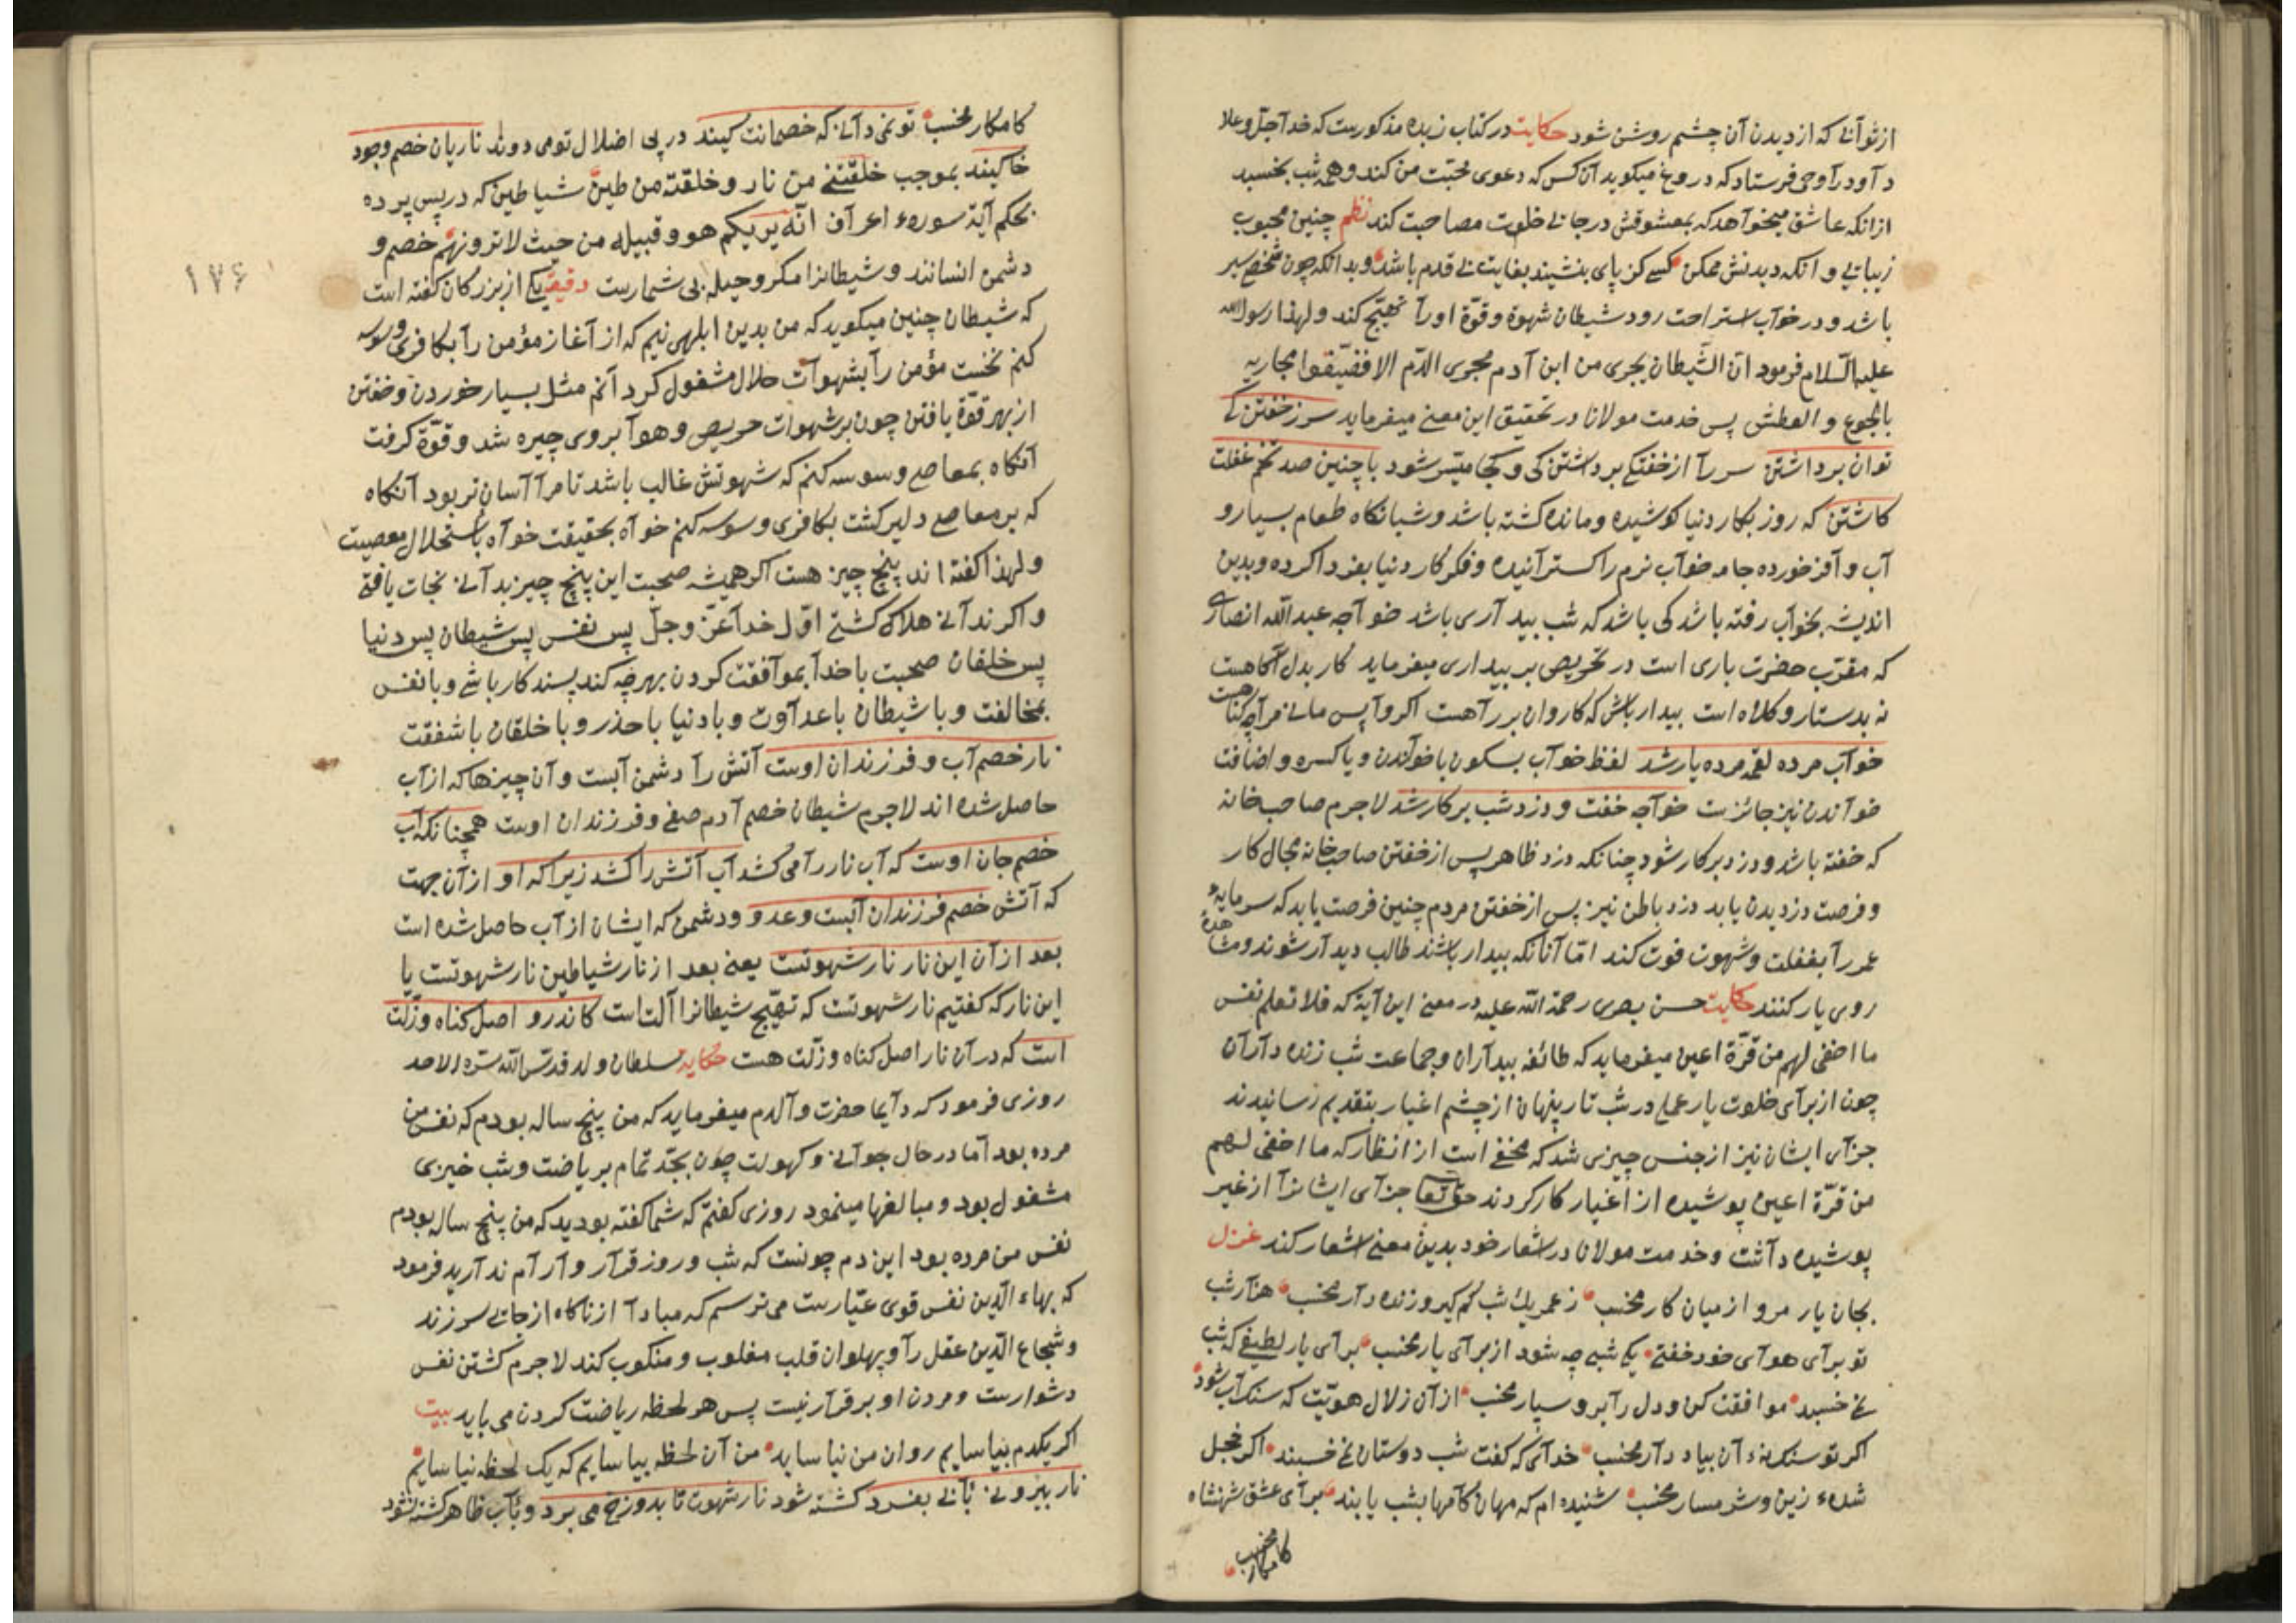 از تو آنی که از دیدن آن چشم روشن شود حکایت در کتاب زبده مذکورست که خدا جل وعلا
داود را وحی فرستاد که دروغ میکوید آن کس که دعوی محبت من کند و همه شب بخسبد
ازانکه عاشق میخواهد که بمعشوقش در جائی خلوت مصاحبت کند نظم چنین محبوب
زیبایی و انکه دیدنش ممکن کسی کز پای بنشیند بغایت بی قدم باشد و بدانکه چون شخص سیر
باشد و در خواب استراحت رود شیطان شهوة و قوّة اورا تهیّج کند و لهذا رسول الله
علیه السّلام فرمود انّ الشّیطان یجری من ابن آدم مجری الدّم الا فضیّقوا مجاریه
بالجوع و العطش پس خدمت مولانا در تحقیق این معنی میفرماید سر ز خفتن کی
توان برداشتن سر را از خفتکی برداشتن کی و کجا میسّر شود با چنین صد تخم غفلت
کاشتن که روز بکار دنیا کوشیده و مانده کشته باشد و شبانکاه طعام بسیار و
آب وافر خورده جامه خواب نرم را کسترانیده و فکر کار دنیا بفردا کرده و بدین
اندیشه بخواب رفته باشد کی باشد که شب بیداری باشد خواجه عبد الله انصاری
که مقرّب حضرت باری است در تحریص بر بیداری میفرماید کار بدل آکاهست
نه بدستار و کلاه است بیدار باش که کاروان بر راهست اکر واپس مانی
خواب مرده لقمه مرده یار شد لفظ خواب بسکون با خواندن و یا کسره و اضافت
خواندن نیز جائزست خواجه خفت و دزد شب بر کار شد لاجرم صاحب خانه
که خفته باشد و دزد بر کار شود چنانکه دزد ظاهر پس از خفتن صاحب خانه مجال کار
و فرصت دزدیدن یابد دزد باطن نیز پس از خفتن مردم چنین فرصت یابد که سرمایهٔ
عمر را بغفلت و شهوت فوت کند امّا آنانکه بیدار باشند طالب دیدار شوند و مشاهدهٔ
روی یار کنند حکایت حسن بصری رحمة الله علیه در معنی این آیة که فلا تعلم نفس
ما اخفی لهم من قرّة اعین میفرماید که طائفه بیداران و جماعت شب زنده داران
چون از برای خلوت یار عملی در شب تار پنهان از چشم اغیار بتقدیم رسانیدند
جزای ایشان نیز از جنس چیزی شد که مخفی است از انظار که ما اخفی لهم
من قرّة اعین پوشیده از اغیار کار کردند حق تعا جزای ایشانرا از غیر
پوشیده داشت و خدمت مولانا در اشعار خود بدین معنی اشعار کند غزل
بجان یار مرو از میان کار مخسب ز عمر یک شب کم کیر و زنده دار مخسب هزار شب
تو برای هوای خود خفتی یکی شبی چه شود از برای یار مخسب برای یار لطیفی که شب
نمی خسبد موافقت کن و دل را برو سپار مخسب از آن زلال هویّت که سنک آب شود
اکر تو سنک نهٔ آن بیاد دار مخسب خدای که کفت شب دوستان نمی خسبند اکر خجل
شدهٔ زین و شرمسار مخسب شنیده ام که مهان کامها بشب یابند برای عشق شهنشاه
کامکار مخسب
۱۷۶
کامکار مخسب تو نمی دانی که خصمانت کیند در پی اضلال تو می دوند ناریان خصم وجود
خاکیند بموجب خلقتنی من نار و خلقته من طین شیاطین که در پس پرده
بحکم آیة سورهٔ اعراف انّه یریکم هو و قبیله من حیث لا ترونهم خصم و
دشمن انسانند و شیطانرا مکر و حیله بی شمارست دقیقه یکی از بزرکان کفته است
که شیطان چنین میکوید که من بدین ابلهی نیم که از آغاز مؤمن را بکافری وسوسه
کنم نخست مؤمن را بشهوات حلال مشغول کردانم مثل بسیار خوردن و خفتن
از بهر قوّة یافتن چون بر شهوات حریص و هوا بر وی چیره شد و قوّة کرفت
آنکاه بمعاصی وسوسه کنم که شهوتش غالب باشد تا مرا آسان تر بود آنکاه
که بر معاصی دلیر کشت بکافری وسوسه کنم خواه بحقیقت خواه باستحلال معصیت
و لهذا کفته اند پنج چیز هست اکر همیشه صحبت این پنج چیز بدانی نجات یافتی
و اکر ندانی هلاک کشتی اوّل خدا عزّ و جلّ پس نفس پس شیطان پس دنیا
پس خلقان صحبت با خدا بموافقت کردن بهرچه کند پسندکار باشی و با نفس
بمخالفت و با شیطان با عداوت و با دنیا با حذر و با خلقان با شفقت
نار خصم آب و فرزندان اوست آتش را دشمن آبست و آن چیزها که از آب
حاصل شده اند لاجرم شیطان خصم آدم صفی و فرزندان اوست همچنانکه آب
خصم جان اوست که آب نار را می کشد آب آتش را کشد زیرا که او از آن جهت
که آتش خصم فرزندان آبست و عدو و دشمن که ایشان از آب حاصل شده است
بعد از آن این نار نار شهوتست یعنی بعد از نار شیاطین نار شهوتست یا
این نار که کفتیم نار شهوتست که تهیّج شیطانرا آلت است کاندرو اصل کناه و زلّت
است که در آن نار اصل کناه و زلّت هست حکایه سلطان ولد قدّس الله سرّه الاحد
روزی فرمود که دایما حضرت والدم میفرماید که من پنج ساله بودم که نفس من
مرده بود امّا در حال جوانی و کهولت چون بجدّ تمام بریاضت و شب خیزی
مشغول بود و مبالغها مینمود روزی کفتم که شما کفته بودید که من پنج ساله بودم
نفس من مرده بود این دم چونست که شب و روز قرار و آرام ندارید فرمود
که بهاء الدّین نفس قوی عیّارست می ترسم که مبادا از ناکاه از جائی سر زند
و شجاع الدّین عقل را و پهلوان قلب مغلوب و منکوب کند لاجرم کشتن نفس
دشوارست و مردن او برقرار نیست پس هر لحظه ریاضت کردن می باید بیت
اکر یکدم بیاسایم روان من نیاساید من آن لحظه بیاسایم که یک لحظه نیاسایم
نار بیرونی بآبی بفسرد کشته شود نار شهوت تا بدوزخ می برد و بآب ظاهر کشته نشود